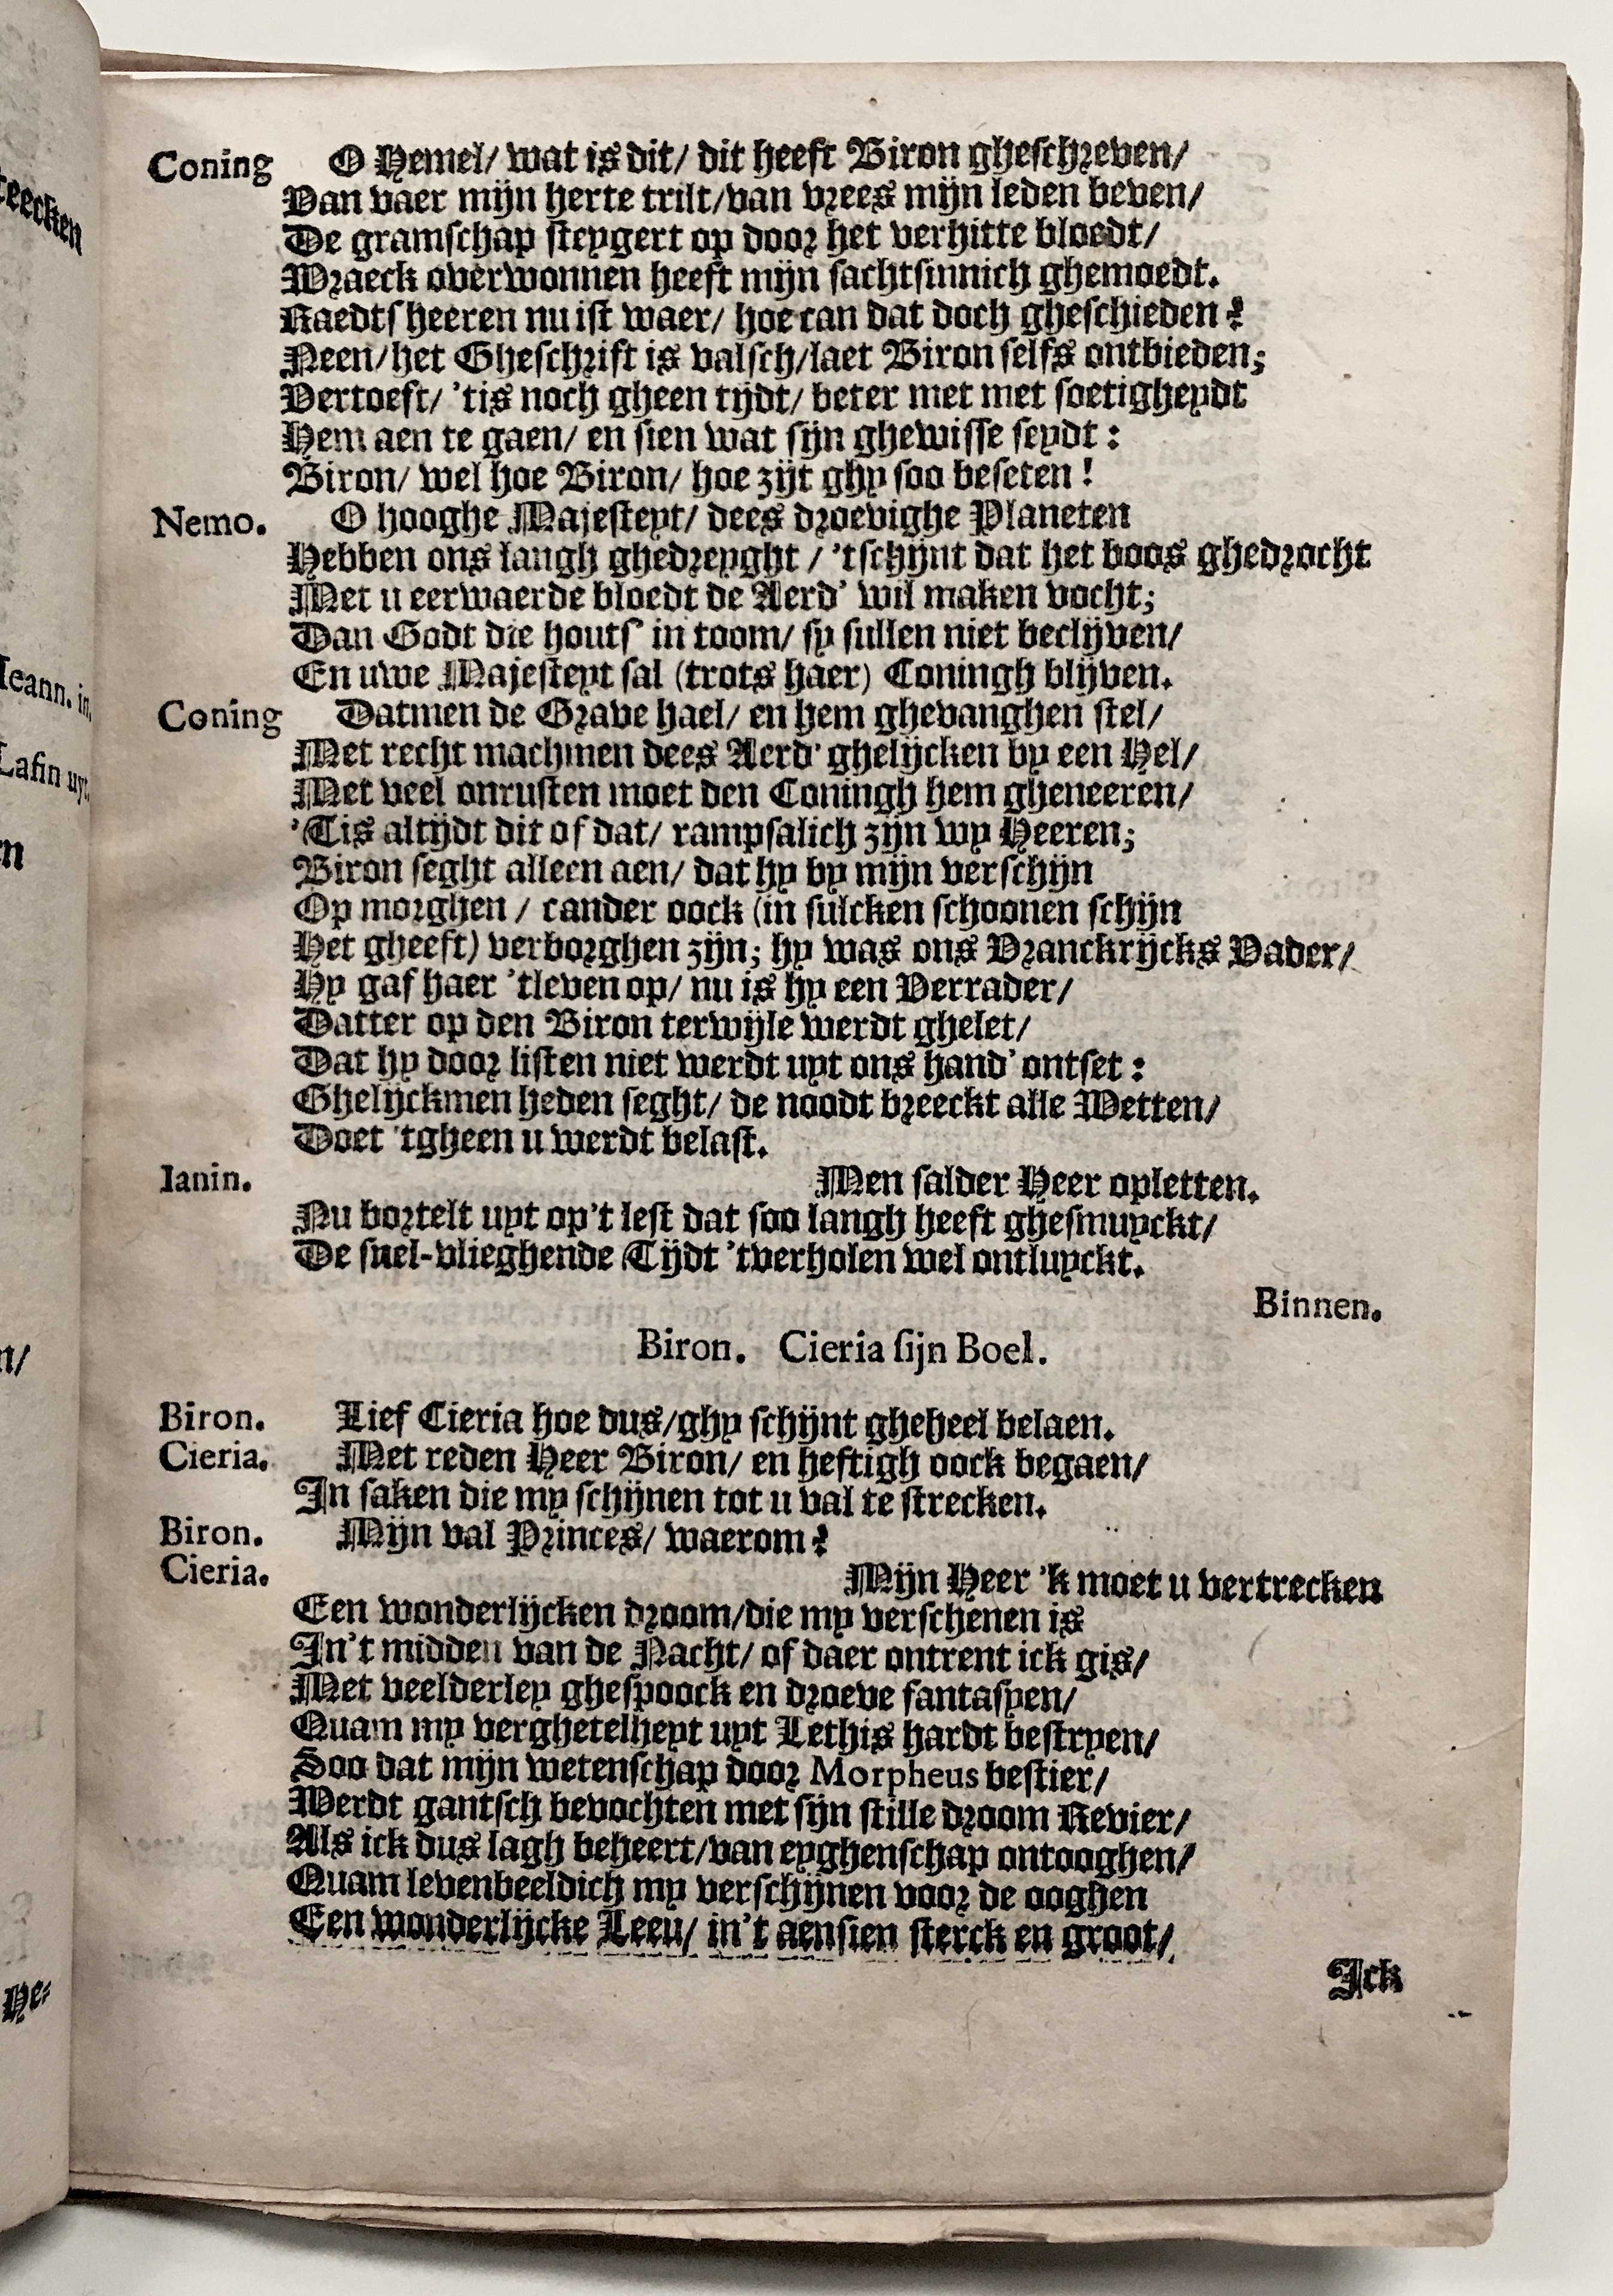 Coning O Hemel/ wat is dit/ dit heeft Biron gheschreven/
Van vaer mijn herte trilt/van vrees mijn leden beven/
De gramschap steygert op door het verhitte bloedt/
Wraeck overwonnen heeft mijn sachtsinnich ghemoedt.
Raedts heeren nu ist waer/ hoe can dat doch gheschieden?
Neen/het Gheschrift is valsch/laet Biron selfs ontbieden;
Vertoeft/ 'tis noch gheen tijdt/ beter met met soetigheydt
Hem aen te gaen/ en sien wat sijn ghewisse seydt:
Biron/ wel hoe Biron/ hoe zijt ghy soo beseten!
Nemo. O hooghe Majesteyt/ dees droevighe Planeten
Hebben ons langh ghedreyght / 'tschijnt dat het boos ghedrocht
Met u eerwaerde bloedt de Aerd' wil maken vocht;
Dan Godt die houts' in toom/ sy sullen niet beclijven/
En uwe Majesteyt sal (trots haer) Coningh blijven.
Coning Datmen de Grave hael/ en hem ghevanghen stel/
Met recht machmen dees Aerd' ghelijcken by een Hel/
Met veel onrusten moet den Coningh hem gheneeren/
'Tis altijdt dit of dat/ rampsalich zijn wy Heeren;
Biron seght alleen aen/ dat hy by mijn verschijn
Op morghen / cander oock (in sulcken schoonen schijn
Het gheeft) verborghen zijn; hy was ons Vranckrijcks Vader/
Hy gaf haer 'tleven op/ nu is hy een Verrader/
Datter op den Biron terwijle werdt ghelet/
Dat hy door listen niet werdt uyt ons hand' ontset:
Ghelijckmen heden seght/ de noodt breeckt alle Wetten/
Doet 'tgheen u werdt belast.
Ianin. Men salder Heer opletten.
Nu bortelt uyt op't lest dat soo langh heeft ghesmuyckt/
De snel-vlieghende Tijdt 'tverholen wel ontluyckt.
Binnen.
Biron. Cieria sijn Boel.
Biron. Lief Cieria hoe dus/ghy schijnt gheheel belaen.
Cieria. Met reden Heer Biron/ en heftigh oock begaen/
In saken die my schijnen tot u val te strecken.
Biron. Mijn val Princes/ waerom?
Cieria. Mijn Heer 'k moet u vertrecken
Een wonderlijcken droom/die my verschenen is
In't midden van de Nacht/ of daer ontrent ick gis/
Met veelderley ghespoock en droeve fantasyen/
Quam my verghetelheyt uyt Lethis hardt bestryen/
Soo dat mijn wetenschap door Morpheus bestier/
Werdt gantsch bevochten met sijn stille droom Revier/
Als ick dus lagh beheert/van eyghenschap ontooghen/
Quam levenbeeldich my verschijnen voor de ooghen
Een wonderlijcke Leeu/ in't aensien sterck en groot/
Ick
teecken
Ieann. in.
Lasin uyt.
n/
He-